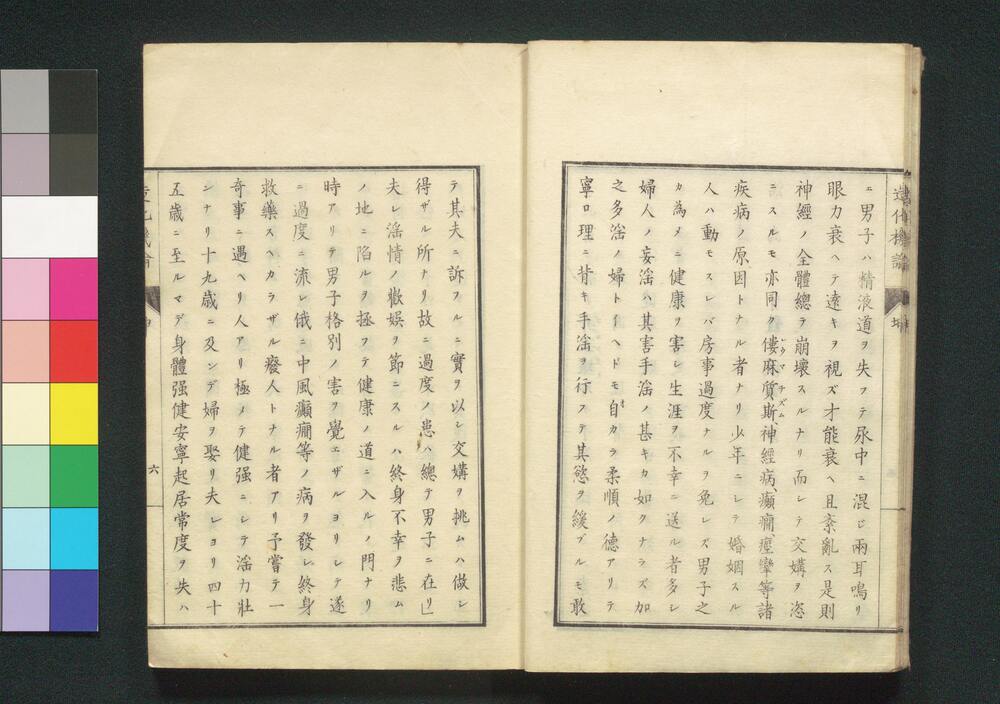 造化機論 坤
ニ男子ハ精液道ヲ失フテ尿中ニ混ジ兩耳鳴リ
眼力衰ヘテ遠キヲ視ズ才能衰ヘ且紊亂ス是則
神經ノ全體總ラ崩壞スルナリ而シテ交媾ヲ恣
ニスルモ亦同ク僂麻質斯神經病、癲癇、痙攣等諸
疾病ノ原因トナル者ナリ少年ニシテ婚姻スル
人ハ動モスレバ房事過度ナルヲ免レズ男子之
カ為メニ健康ヲ害シ生涯ヲ不幸ニ送ル者多シ
婦人ノ妄淫ハ其害手淫ノ甚キカ如クナラズ加
之多淫ノ婦トイヘドモ自カラ柔順ノ德アリテ
寧ロ理ニ背キ手淫ヲ行フテ其慾ヲ緩ブルモ敢
テ其夫ニ訴フルニ實ヲ以シ交媾ヲ挑ムハ做シ
得ザル所ナリ故ニ過度ノ患ハ總テ男子ニ在リ」
夫レ淫情ノ歡娯ヲ節ニスルハ終身不幸ヲ悲ム
ノ地ニ陷ルヲ拯フテ健康ノ道ニ入ルノ門ナリ
時アリテ男子格別ノ害ヲ覺エザルヨリシテ遂
ニ過度ニ流レ俄ニ中風癲癇等ノ病ヲ發シ終身
救藥スヘカラザル癈人トナル者アリ予嘗テ一
奇事ニ遇ヘリ人アリ極メテ健强ニシテ淫力壯
ンナリ十九歳ニ及ンデ婦ヲ娶リ夫レヨリ四十
五歳ニ至ルマデ身體强健安寧起居常度ヲ失ハ
六